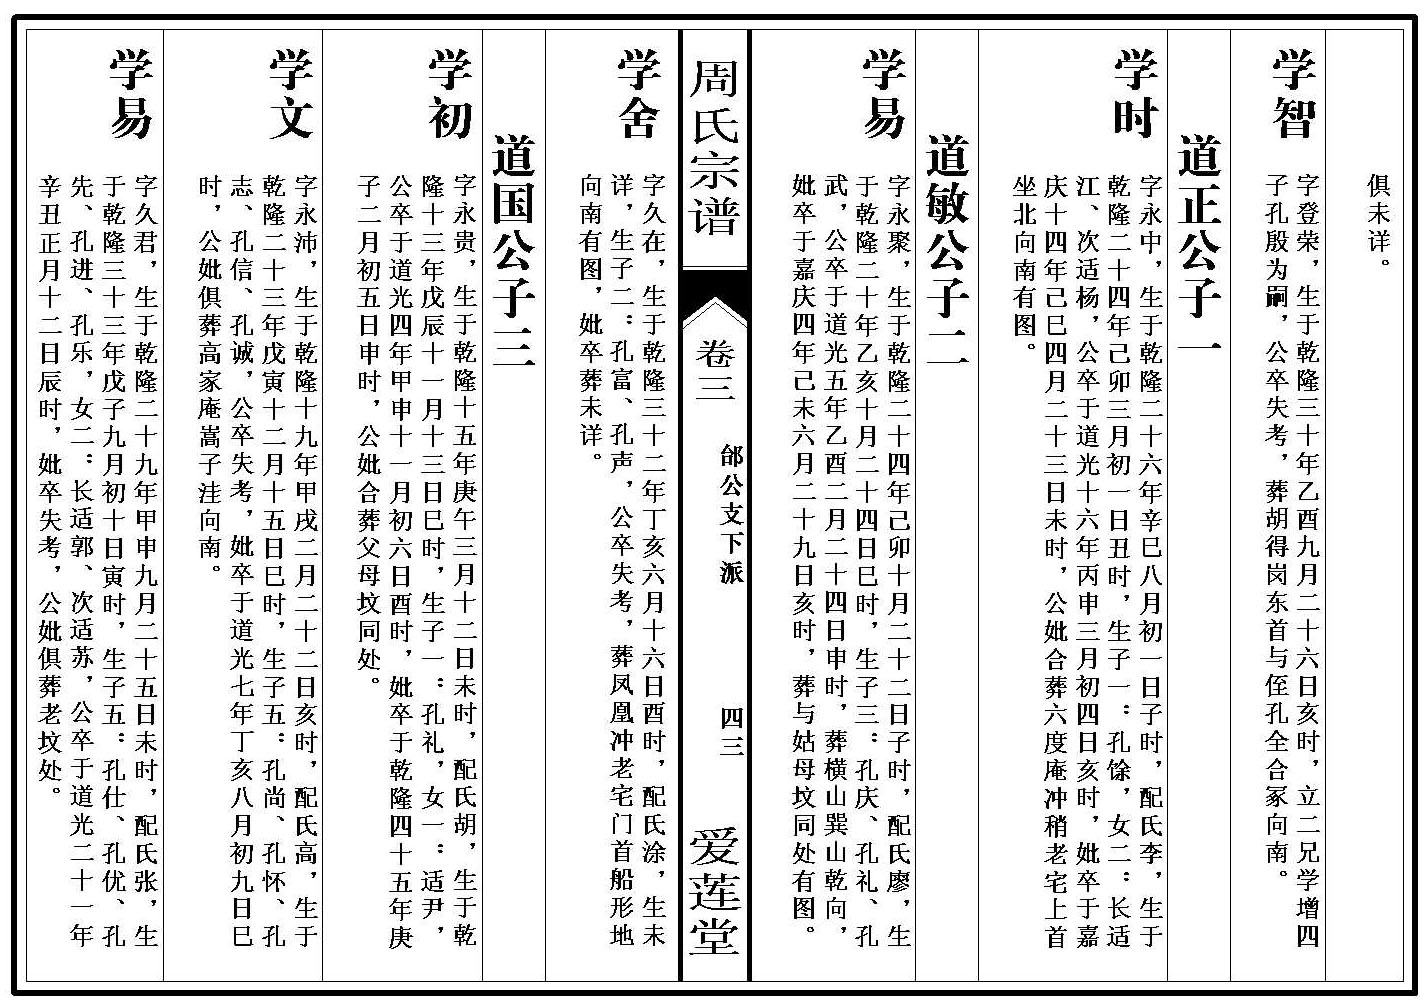 俱未详。
学智
字登荣，生于乾隆三十年乙酉九月二十六日亥时，立二兄学增四
子孔殷为嗣，公卒失考，葬胡得岗东首与侄孔全合冢向南。
道正公子一
学时
字永中，生于乾隆二十六年辛巳八月初一日子时，配氏李，生于
乾隆二十四年己卯三月初一日丑时，生子一：孔馀，女二：长适
江、次适杨，公卒于道光十六年丙申三月初四日亥时，妣卒于嘉
庆十四年己巳四月二十三日未时，公妣合葬六度庵冲稍老宅上首
坐北向南有图。
道敏公子二
学易
字永聚，生于乾隆二十四年己卯十月二十二日子时，配氏廖，生
于乾隆二十年乙亥十月二十四日巳时，生子三：孔庆、孔礼、孔
武，公卒于道光五年乙酉二月二十四日申时，葬横山巽山乾向，
妣卒于嘉庆四年己未六月二十九日亥时，葬与姑母坟同处有图。
周氏宗谱
卷三
邰公支下派
四三
爱莲堂
学舍
字久在，生于乾隆三十二年丁亥六月十六日酉时，配氏涂，生未
详，生子二：孔富、孔声，公卒失考，葬凤凰冲老宅门首船形地
向南有图，妣卒葬未详。
道国公子三
学初
字永贵，生于乾隆十五年庚午三月十二日未时，配氏胡，生于乾
隆十三年戊辰十一月十三日巳时，生子一：孔礼，女一：适尹，
公卒于道光四年甲申十一月初六日酉时，妣卒于乾隆四十五年庚
子二月初五日申时，公妣合葬父母坟同处。
学文
字永沛，生于乾隆十九年甲戌二月二十二日亥时，配氏高，生于
乾隆二十三年戊寅十二月十五日巳时，生子五：孔尚、孔怀、孔
志、孔信、孔诚，公卒失考，妣卒于道光七年丁亥八月初九日巳
时，公妣俱葬高家庵嵩子洼向南。
学易
字久君，生于乾隆二十九年甲申九月二十五日未时，配氏张，生
于乾隆三十三年戊子九月初十日寅时，生子五：孔仕、孔优、孔
先、孔进、孔乐，女二：长适郭、次适苏，公卒于道光二十一年
辛丑正月十二日辰时，妣卒失考，公妣俱葬老坟处。